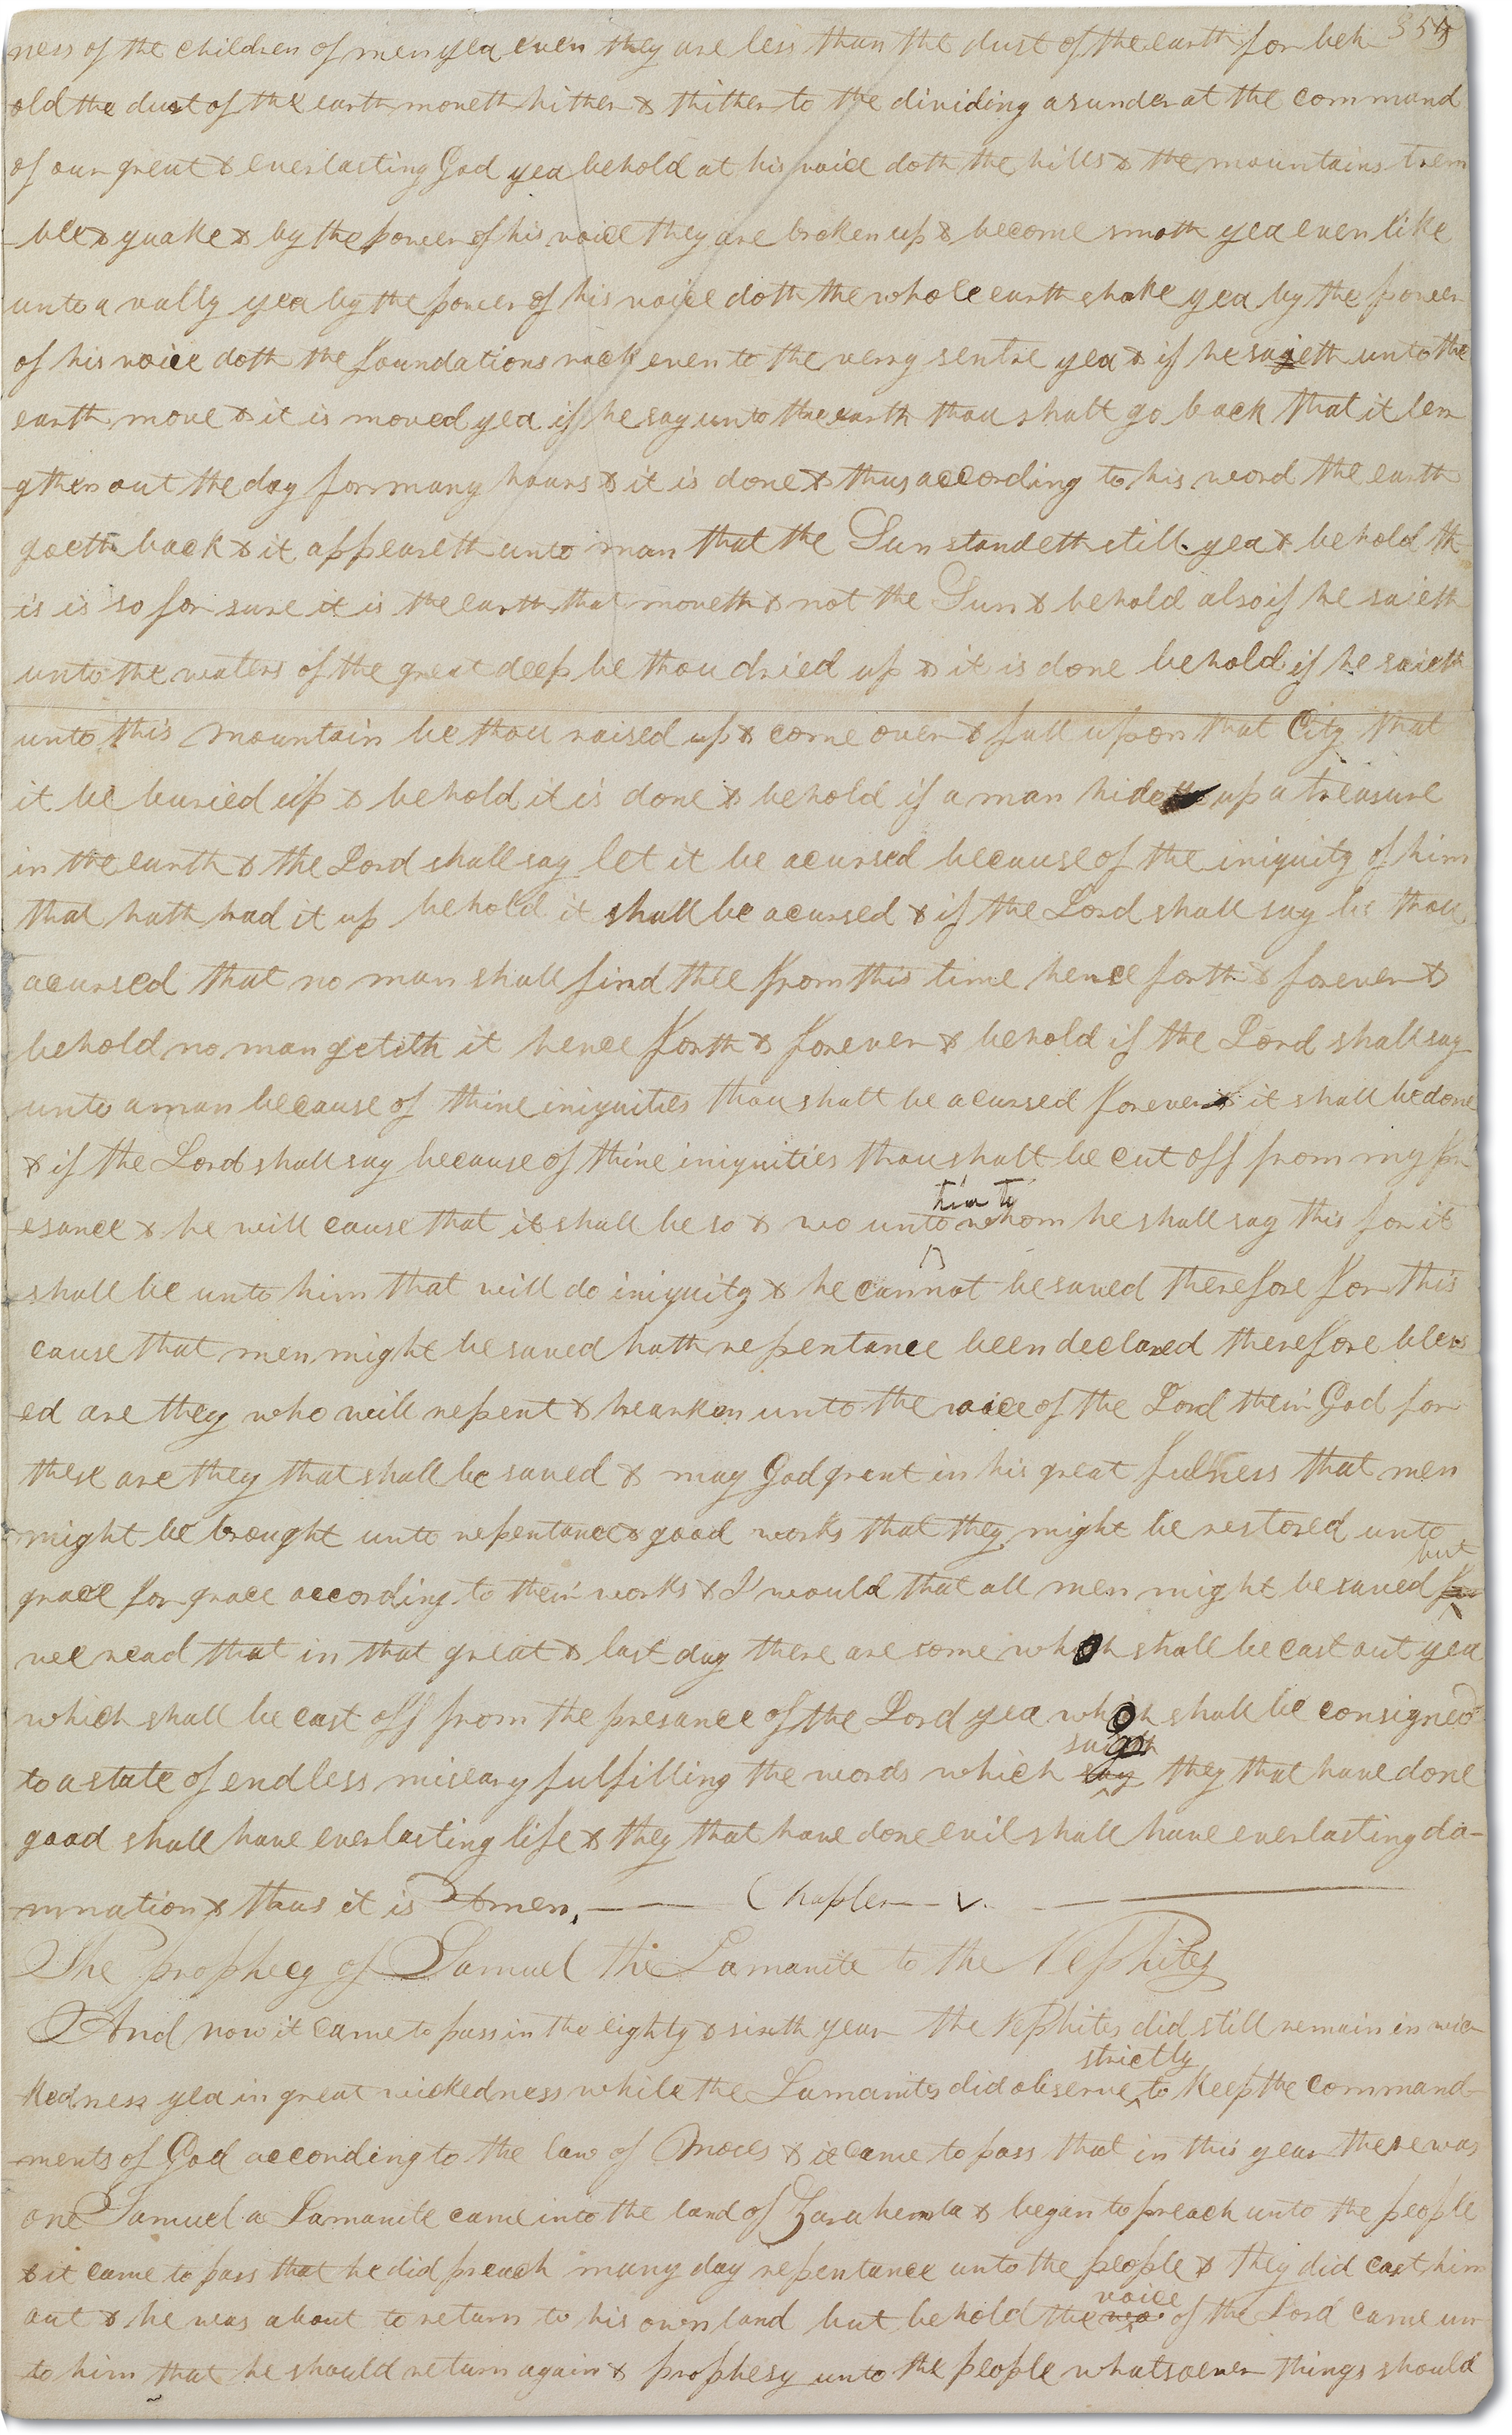 355
ness of the children of men yea even they are less than the dust of the earth for beh
old the dust of the earth moveth hither & thither to the dividing asunder at the command
of our great & everlasting God yea behold at his voice doth the hills & the mountains trem
-ble & quake & by the power of his voice they are broken up & become smoth yea even like
unto a vally yea by the power of his voice doth the whole earth shake yea by the power
of his voice doth the foundations rock even to the verry sentre yea & if he sayeth unto the
earth move & it is moved yea if he say unto the earth thou shalt go back that it len
-gthen out the day for many hours & it is done & thus according to his word the earth
goeth back & it appeareth unto man that the Sun standeth still yea & behold th
is is so for sure it is the earth that moveth & not the Sun & behold also if he saieth
unto the waters of the great deep be thou dried up & it is done behold if he saieth
unto this mountain be thou raised up & come over & fall upon that City that
it be buried up & behold it is done & behold if a man hideth up a treasure
in the earth & the Lord shall say let it be acursed because of the iniquity of him
that hath had it up behold it shall be acursed & if the Lord shall say be thou
acursed that no man shall find thee from this time hence forth & forever &
behold no man getteth it hence forth & forever & behold if the Lord shall say
unto a man because of thine iniquities thou shalt be acursed forever & it shall be done
& if the Lord shall say because of thine iniquities thou shalt be cut off from my pr
-esance & he will cause that it shall be so & wo unto him to whom he shall say this for it
shall be unto him that will do iniquity & he cannot be saved therefore for this
cause that men might be saved hath repentance been declared therefore bless
-ed are they who will repent & hearken unto the voice of the Lord their God for
these are they that shall be saved & may God grant in his great fulness that men
might be brought unto repentance & good works that they might be restored unto
grace for grace according to their works & I would that all men might be saved for but
we read that in that great & last day there are some which shall be cast out yea
which shall be cast off from the presance of the Lord yea which shall be consigned
to a state of endless miseary fulfilling the words which say they that have done
good shall have everlasting life & they that have done evil shall have everlasting da-
mnation & thus it is Amen, — Chapter — V. —
The prophecy of Samuel the Lamanite to the Nephites
And now it came to pass in the eighty & sixth year the Nephites did still remain in wic
kedness yea in great wickedness while the Lamanites did observe strictly to keep the command-
-ments of God according to the law of Moses & it came to pass that in this year there was
one Samuel a Lamanite came into the land of Zarahemla & began to preach unto the people
& it came to pass that he did preach many day repentance unto the people & they did cast him
out & he was about to return to his own land but behold the voice of the Lord came un-
to him that he should return again & prophesy unto the people whatsoever things should